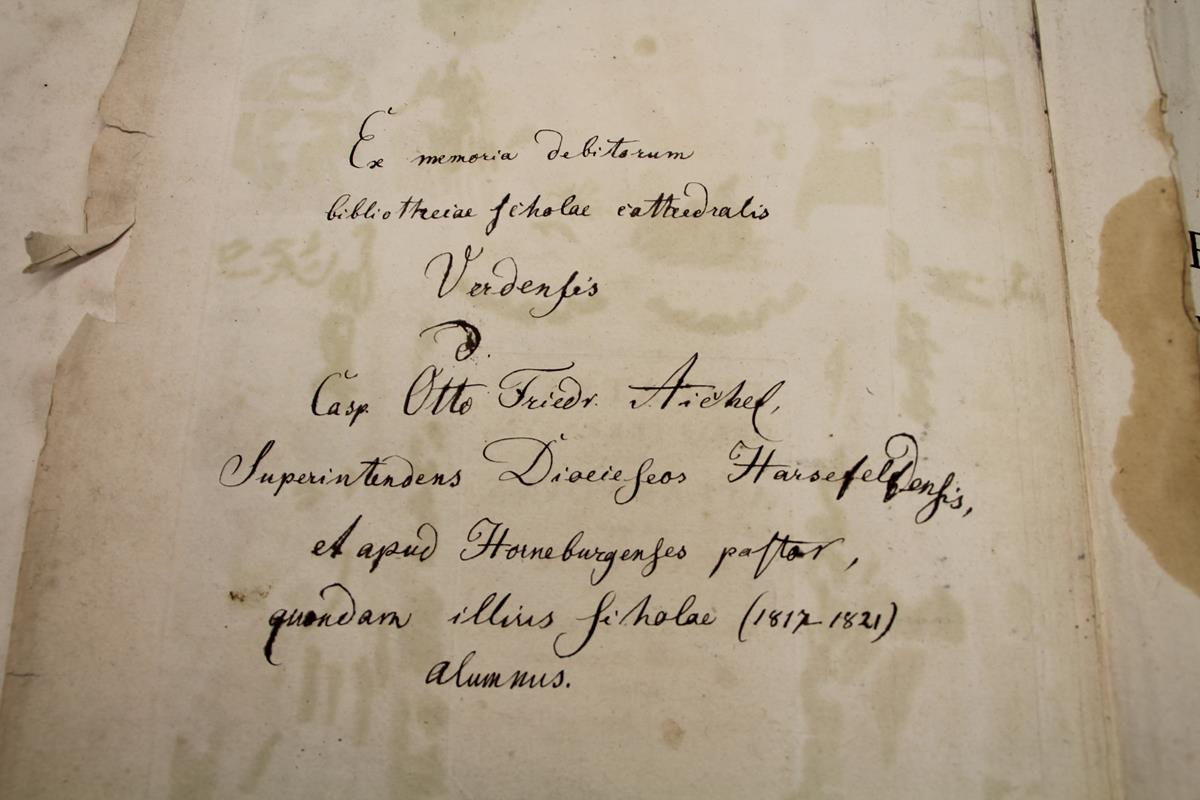 Ex memoria debitorum
bibliothecae scholae cathedralis
Verdensis
d.
Casp. Otto Friedr. Aichel,
Superintendens Dioeceseos Harsefeldensis,
et apud Horneburgenses pastor,
quondam illius scholae (1817–1821)
alumnus.